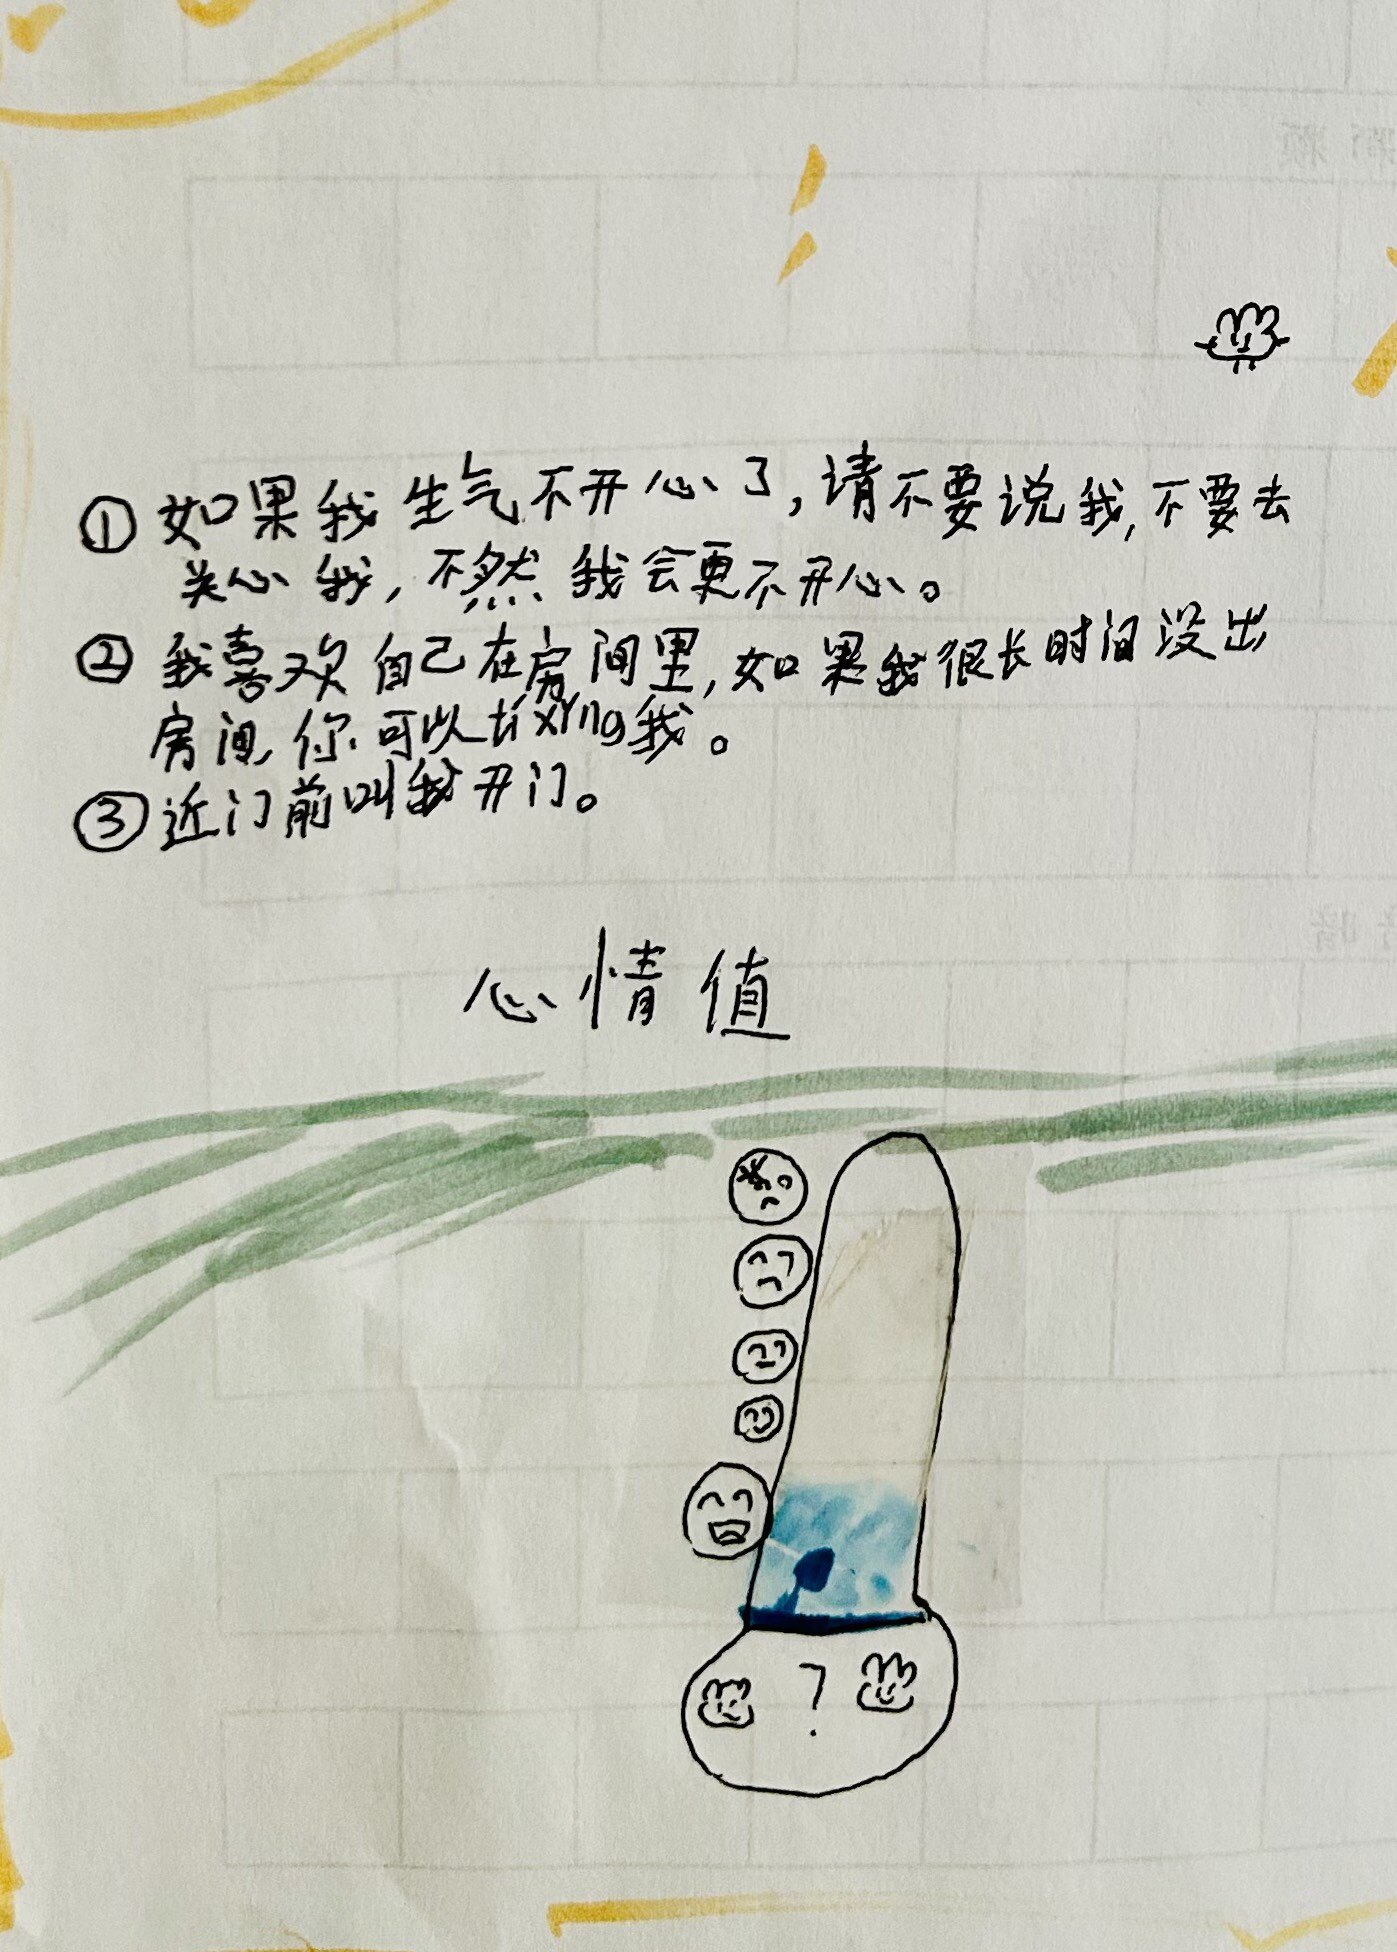 ①如果我生气不开心了,请不要说我,不要去
关心我,不然我会更不开心。
②我喜欢自己在房间里,如果我很长时间没出
房间,你可以tíxǐng我。
③近门前叫我开门。
心情值
?